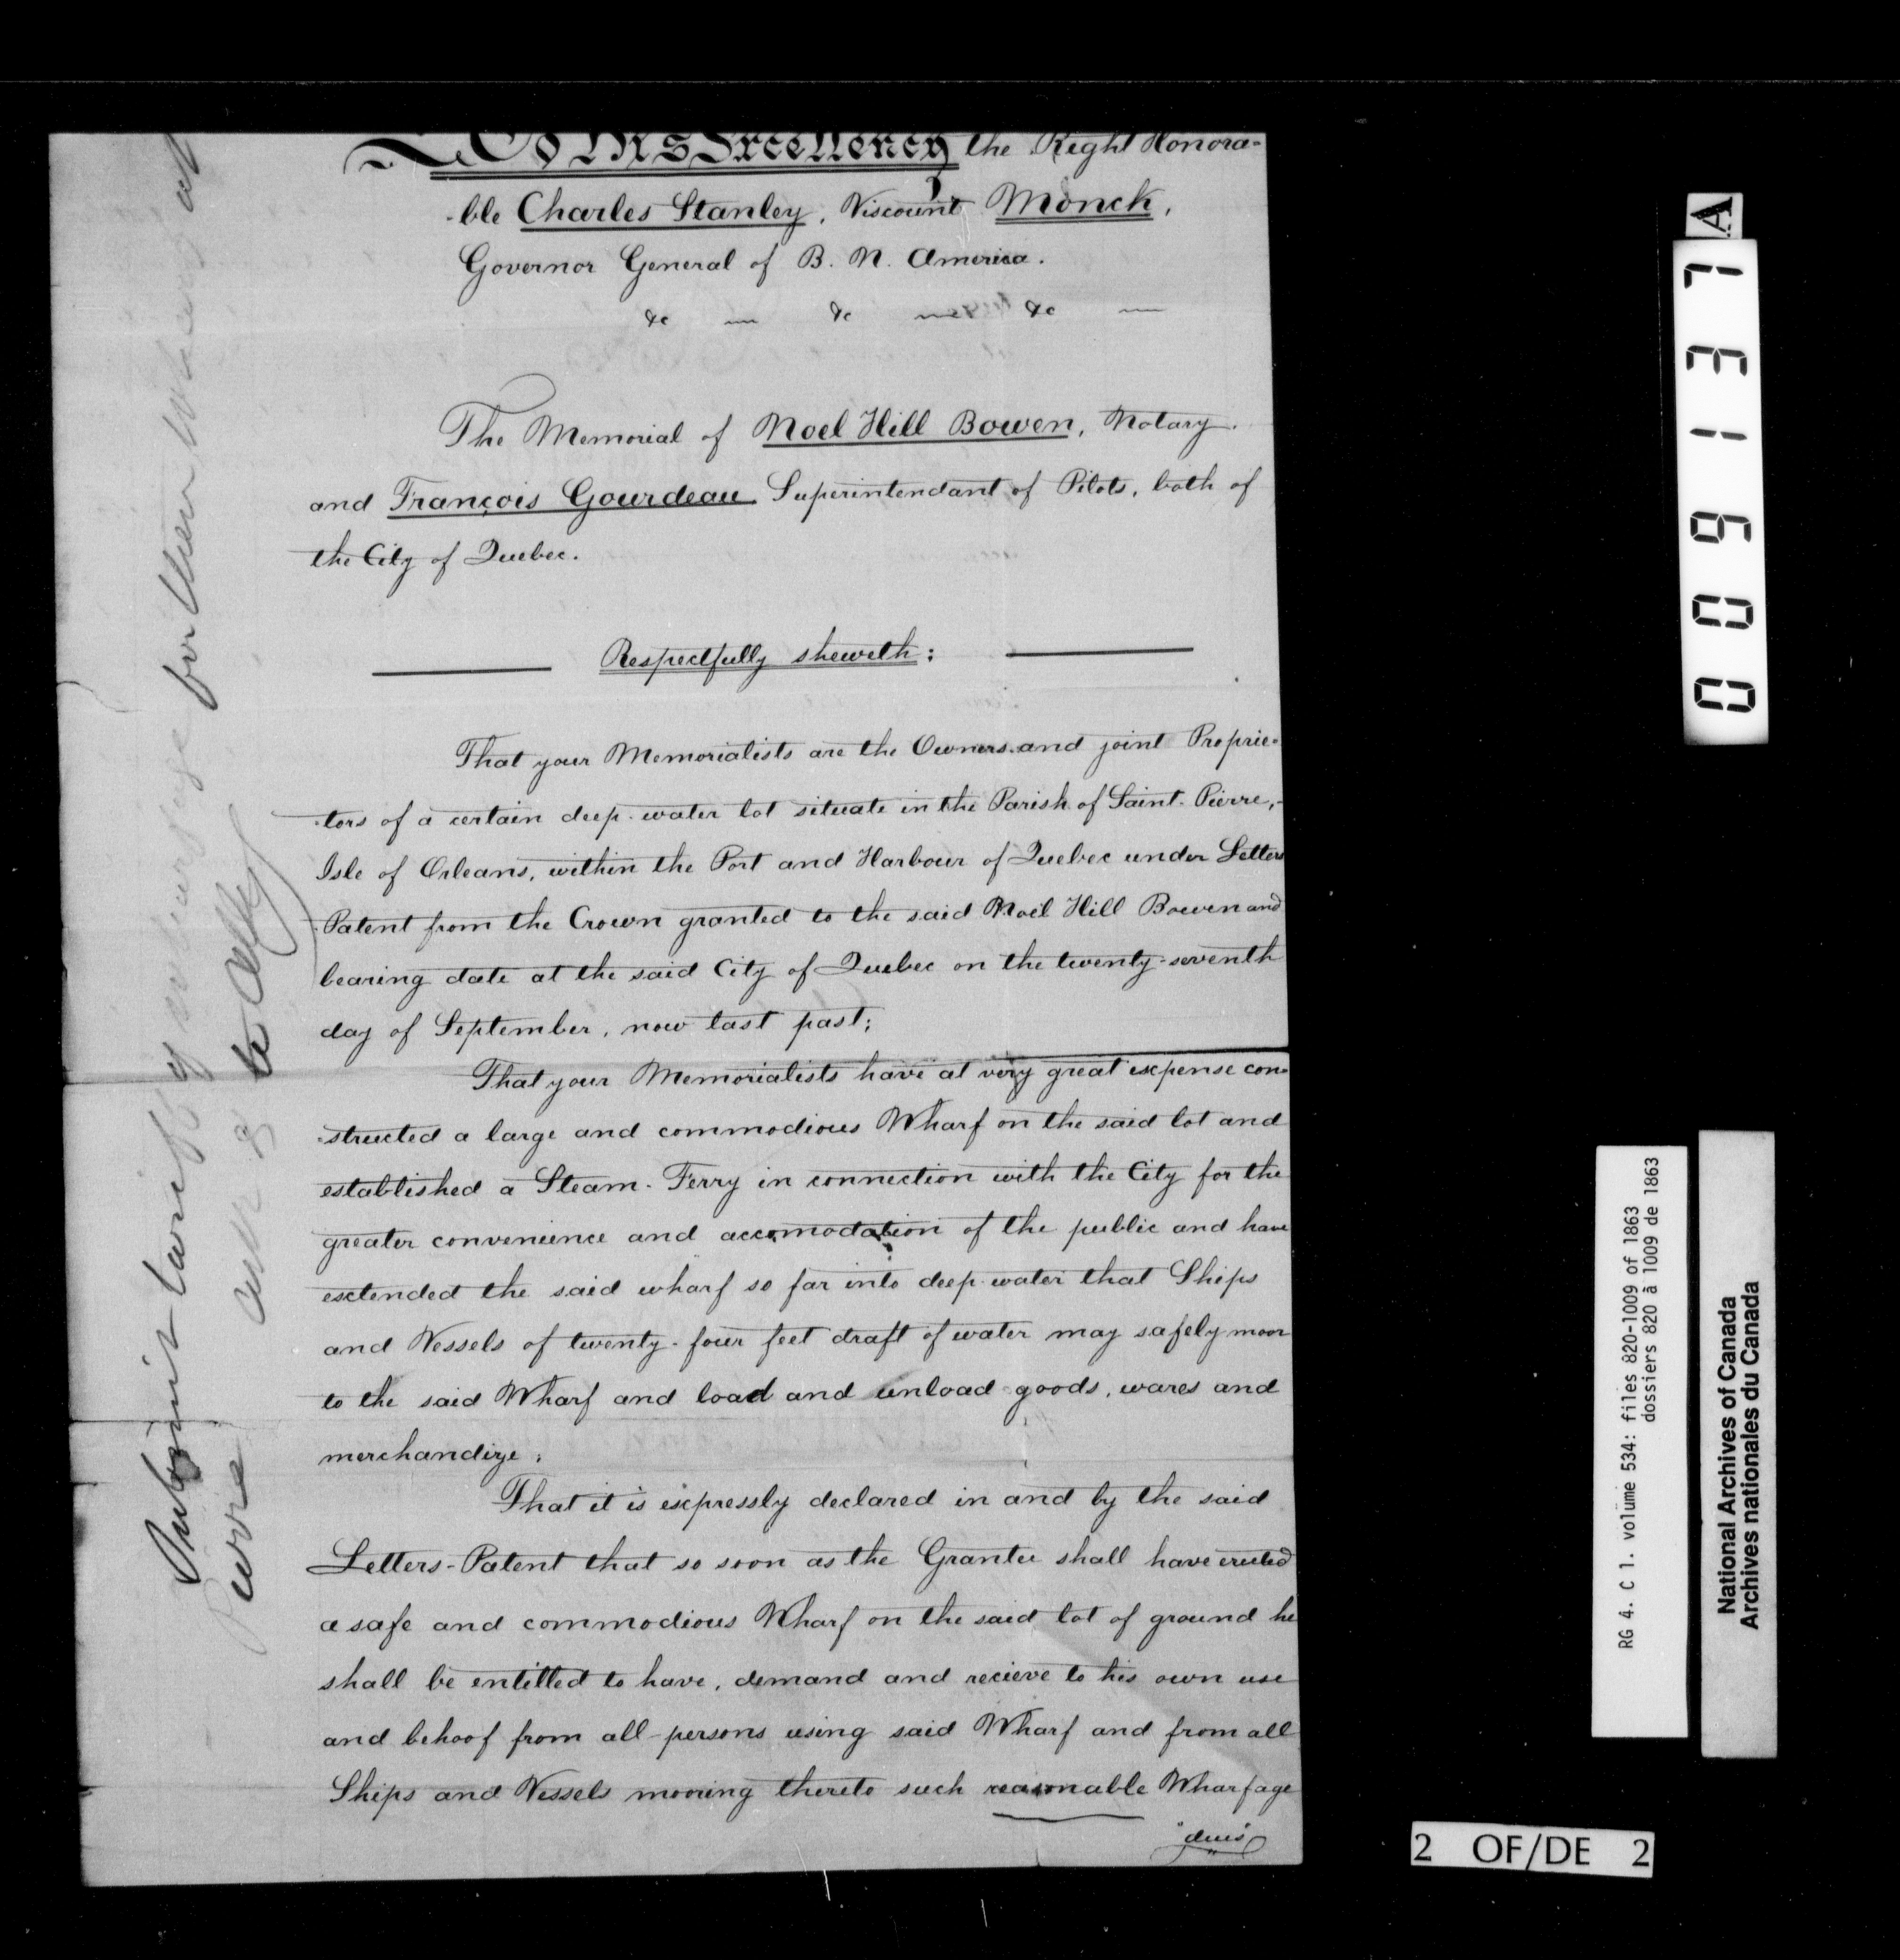 To His Excellency the Right Honora-
-ble Charles Stanley, Viscount Monck,
Governor General of B. N. America.
&c — &c — &c —
The Memorial of Noel Hill Bowen, Notary.
and François Gourdeau Superintendant of Pilots, both of
the City of Quebec.
Respectfully sheweth:
That your Memorialists are the Owners and joint Proprie-
-tors of a certain deep-water lot situate in the Parish of Saint-Pierre,-
Isle of Orleans, within the Port and Harbour of Quebec under Letters
Patent from the Crown granted to the said Noël Hill Bowen and
bearing date at the said City of Quebec on the twenty-seventh
day of September, now last past;
That your Memorialists have at very great expense con-
-structed a large and commodious Wharf on the said lot and
established a Steam-Ferry in connection with the City for the
greater convenience and accomodation of the public and have
extended the said wharf so far into deep-water that Ships
and Vessels of twenty-four feet draft of water may safely moor
to the said Wharf and load and unload goods, wares and
merchandize;
That it is expressly declared in and by the said
Letters-Patent that so soon as the Grantee shall have erected
a safe and commodious Wharf on the said lot of ground he
shall be entitled to have, demand and recieve to his own use
and behoof from all persons using said Wharf and from all
Ships and Vessels mooring thereto such reasonable Wharfage
"dues"
Submit tariff of wharfage for their wharf at
009137 A
RG 4. C 1. volume 534: files 820-1009 of 1863
dossiers 820 à 1009 de 1863
National Archives of Canada
Archives nationales du Canada
2 OF/DE 2